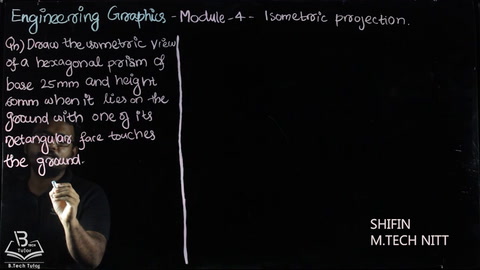 Engineering Graphics - Module-4- Isometric projection.
Qn) Draw the isometric view
of a hexagonal prism of
base 25mm and height
60mm when it lies on the
ground with one of its
rectangular face touches
the ground.
SHIFIN
M.TECH NITT
B.Tech
Tutor
B.Tech Tutor